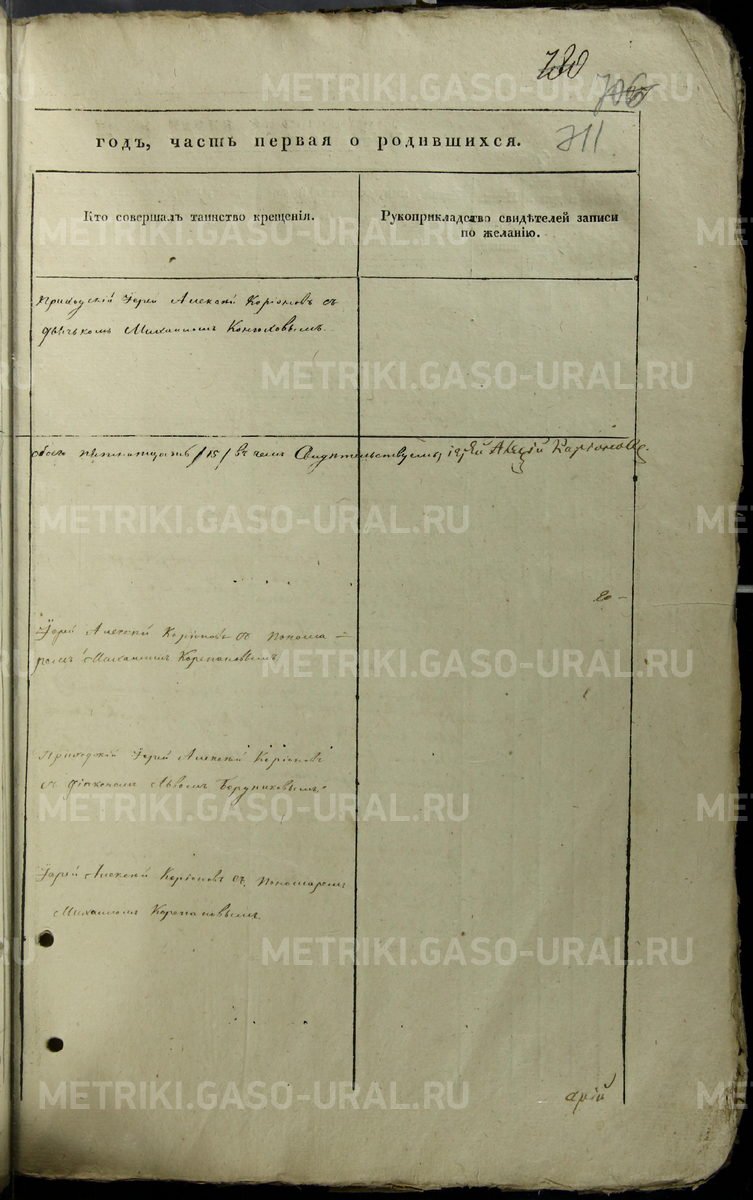 730
706
711
годъ, часть первая о родившихся.
Кто совершалъ таинство крещенія.
Рукоприкладство свидѣтелей записи
по желанію.
Приходскій Іерей Алексій Каріоновъ съ
дьячькомъ Михаиломъ
обоего пятнатцать /15/ въ чемъ Свидѣтельствуемъ, іерей Алексій Каріоновъ.
Іерей Алексій Каріоновъ съ понома-
ремъ Михаиломъ Корепановымъ
Приходскій Іерей Алексій Каріоновъ
съ діакономъ Львомъ
Іерей Алексій Каріоновъ съ Пономаремъ
Михаиломъ Корепановымъ
METRIKI.GASO-URAL.RU